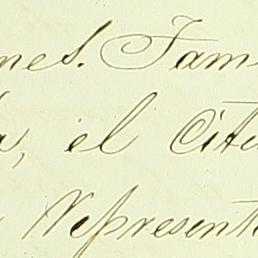 nes. Fam
a, el Cite
Represent